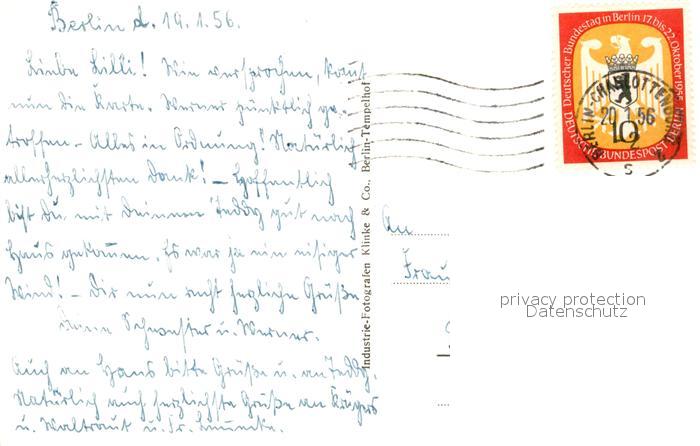 Berlin d. 19.1.56.
Liebe Lilli! Wie versprochen, kommt
nun die Karte. Werner pünktlich ge-
troffen – Alles in Ordnung! Natürlich
allerherzlichsten Dank! – Hoffentlich
bist Du mit Deinem Teddy gut nach
Haus gekommen. Es war ja ein eisiger
Wind! – Dir nun recht herzliche Grüße
Deine Schwester u. Werner.
Auch an Hans bitte Grüße u. an Teddy.
Natürlich auch herzlichste Grüße an
u. Waltraut u. Fr.
Industrie-Fotografen Klinke & Co., Berlin-Tempelhof
Deutscher Bundestag in Berlin 17. bis 22. Oktober 1955
DEUTSCHE BUNDESPOST BERLIN
10
BERLIN-CHARLOTTENBURG
20 1 56
An
Frau
privacy protection
Datenschutz